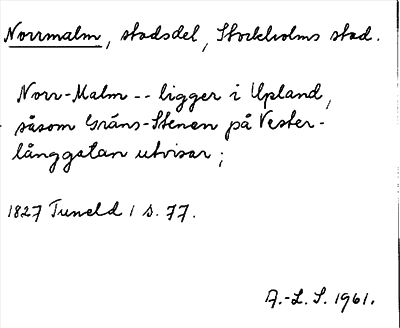 Norrmalm, stadsdel, Stockholms stad.
Norr-Malm -- ligger i Upland,
såsom Gräns-Stenen på Vester-
långgatan utvisar;
1827 Tuneld 1 s. 77.
A.-L. S. 1961.